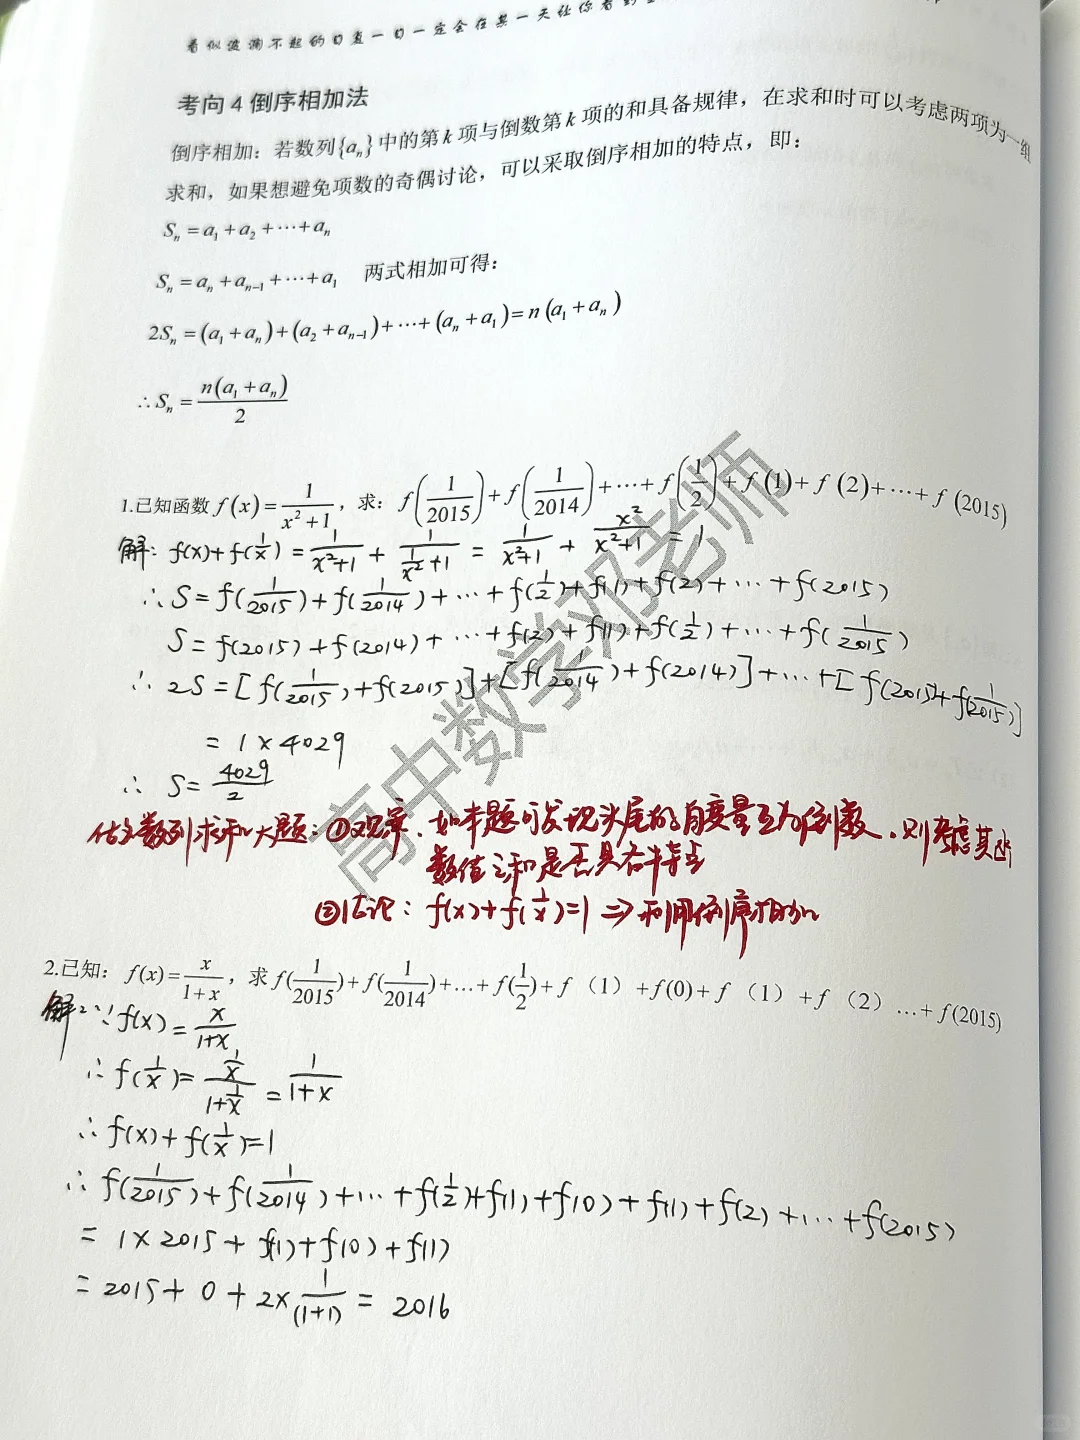 看似波澜不起的日复一日一定会在某一天让你看到
考向 4 倒序相加法
倒序相加：若数列{aₙ}中的第k项与倒数第k项的和具备规律，在求和时可以考虑两项为一组
求和，如果想避免项数的奇偶讨论，可以采取倒序相加的特点，即：
Sₙ = a₁ + a₂ + ⋯ + aₙ
Sₙ = aₙ + aₙ₋₁ + ⋯ + a₁ 两式相加可得：
2Sₙ = (a₁ + aₙ) + (a₂ + aₙ₋₁) + ⋯ + (aₙ + a₁) = n(a₁ + aₙ)
∴ Sₙ = n(a₁ + aₙ)/2
1.已知函数 f(x) = 1/(x² + 1)，求：f(1/2015) + f(1/2014) + ⋯ + f(1/2) + f(1) + f(2) + ⋯ + f(2015)
解：f(x)+f(1/x) = 1/(x²+1) + 1/(1/x²+1) = 1/(x²+1) + x²/(x²+1) = 1
∴ S = f(1/2015) + f(1/2014) + ⋯ + f(1/2) + f(1) + f(2) + ⋯ + f(2015)
S = f(2015) + f(2014) + ⋯ + f(2) + f(1) + f(1/2) + ⋯ + f(1/2015)
∴ 2S = [f(1/2015) + f(2015)] + [f(1/2014) + f(2014)] + ⋯ + [f(2015) + f(1/2015)]
= 1 × 4029
∴ S = 4029/2
数列求和大题：①观察，如本题可发现头尾的自变量互为倒数，则考虑其函
数值之和是否具有特点
②论：f(x) + f(1/x) = 1 ⇒ 利用倒序相加
2.已知：f(x) = x/(1+x)，求 f(1/2015) + f(1/2014) + … + f(1/2) + f（1）+ f(0) + f（1）+ f（2）… + f(2015)
解：∵ f(x) = x/(1+x)
∴ f(1/x) = (1/x)/(1+1/x) = 1/(1+x)
∴ f(x) + f(1/x) = 1
∴ f(1/2015) + f(1/2014) + ⋯ + f(1/2) + f(1) + f(0) + f(1) + f(2) + ⋯ + f(2015)
= 1 × 2015 + f(1) + f(0) + f(1)
= 2015 + 0 + 2 × 1/(1+1) = 2016
高中数学邓老师